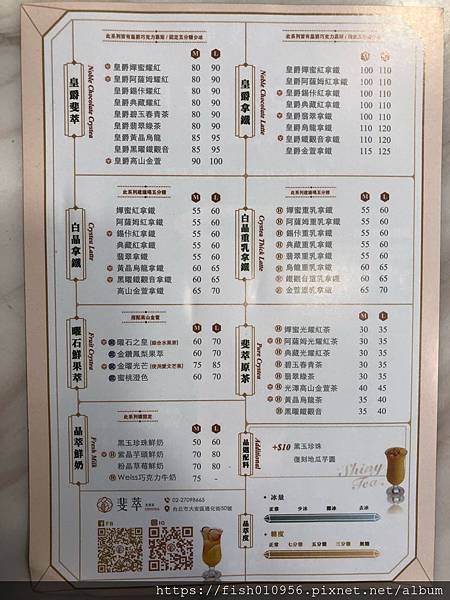 皇爵斐萃
Noble Chocolate Crystea
此系列皆有皇爵巧克力慕斯 / 固定五分糖少冰
M L
皇爵嬋蜜耀紅 80 90
皇爵阿薩姆耀紅 80 90
皇爵錫佧耀紅 80 90
皇爵典藏耀紅 80 90
皇爵碧玉春青茶 80 90
皇爵翡翠綠茶 80 90
皇爵黃晶烏龍 85 95
皇爵黑曜鐵觀音 85 95
皇爵高山金萱 90 100
皇爵拿鐵
Noble Chocolate Latte
M L
皇爵嬋蜜紅拿鐵 100 110
皇爵阿薩姆紅拿鐵 100 110
皇爵錫佧紅拿鐵 100 110
皇爵典藏紅拿鐵 100 110
皇爵翡翠拿鐵 100 110
皇爵烏龍拿鐵 110 120
皇爵鐵觀音拿鐵 110 120
皇爵金萱拿鐵 115 125
白晶拿鐵
Crystea Latte
此系列建議喝五分糖
M L
嬋蜜紅拿鐵 55 60
阿薩姆紅拿鐵 55 60
錫佧紅拿鐵 55 60
典藏紅拿鐵 55 60
翡翠拿鐵 55 60
黃晶烏龍拿鐵 60 65
黑曜鐵觀音拿鐵 60 65
高山金萱拿鐵 65 70
白晶重乳拿鐵
Crystea Thick Latte
此系列建議喝五分糖
M L
嬋蜜重乳拿鐵 55 60
阿薩姆重乳拿鐵 55 60
錫佧重乳拿鐵 55 60
典藏重乳拿鐵 55 60
翡翠重乳拿鐵 55 60
烏龍重乳拿鐵 60 65
鐵觀音重乳拿鐵 60 65
金萱重乳拿鐵 65 70
曜石鮮果萃
Fruit Crystea
搭配高山金萱
M L
曜石之皇(綜合水果茶) 60 70
金鑽鳳梨果萃 60 70
金曜光芒(使用愛文芒果) 75 85
蜜桃澄色 60 70
斐萃原茶
Pure Crystea
M L
嬋蜜光耀紅茶 30 35
阿薩姆光耀紅茶 30 35
典藏光耀紅茶 30 35
碧玉春青茶 30 35
翡翠綠茶 30 35
光澤高山金萱茶 40 45
黃晶烏龍茶 35 40
黑曜鐵觀音 35 40
晶萃鮮奶
Fresh Milk
M L
黑玉珍珠鮮奶 50 60
紫晶芋頭鮮奶 70 80
粉晶草莓鮮奶 70 80
Weiss巧克力牛奶 75 -
晶選配料
Additional
+$10 黑玉珍珠
復刻地瓜芋圓
Shiny Tea
斐萃
02-27098665
台北市大安區通化街50號
FB
IG
晶萃度
冰量
正常 少冰 微冰 去冰
糖度
正常 七分糖 五分糖 三分糖 無糖
https://fish010956.pixnet.net/album